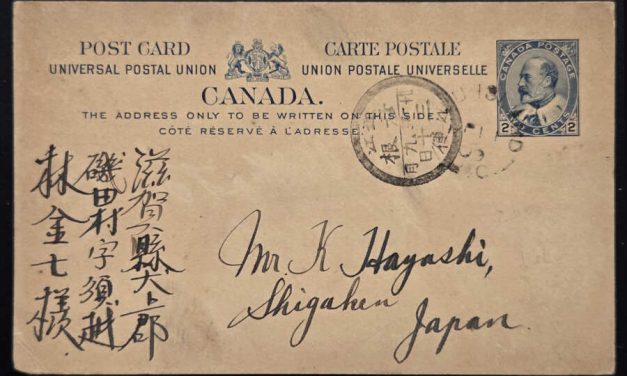 POST CARD
CARTE POSTALE
UNIVERSAL POSTAL UNION
UNION POSTALE UNIVERSELLE
CANADA.
THE ADDRESS ONLY TO BE WRITTEN ON THIS SIDE.
CÔTÉ RÉSERVÉ À L'ADRESSE.
CANADA POSTAGE
2 CENTS 2
滋賀縣犬上郡
磯田村字須越
林金七様
Mr. K Hayashi,
Shigaken
Japan.